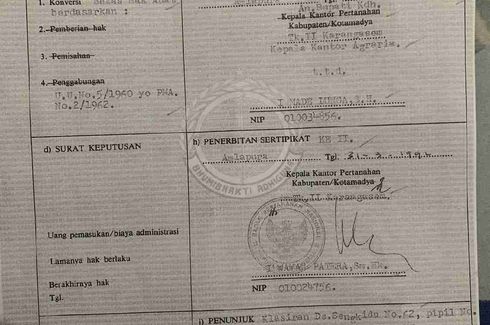 1. Konversi
berdasarkan :
2. Pemberian hak
3. Pemisahan
4. Penggabungan
U.U.No.5/1960 yo PMA.
No.2/1962.
An.Bupati Kdh.
Kepala Kantor Pertanahan
Kabupaten/Kotamadya
Tk.II Karangasem
Kepala Kantor Agraria.
t.t.d.
I MADE
NIP 010034856.
d) SURAT KEPUTUSAN
Uang pemasukan/biaya administrasi
Lamanya hak berlaku
Berakhirnya hak
Tgl.
h) PENERBITAN SERTIPIKAT KE II.
Amlapura Tgl.
Kepala Kantor Pertanahan
Kabupaten/Kotamadya
Tk.II Karangasem.
BHUMIBHAKTI
I WAYAN PATERA,Sm.Hk.
NIP 010024756.
i) PENUNJUK Klasiran Ds.Sengkidu No.62, pipil No.